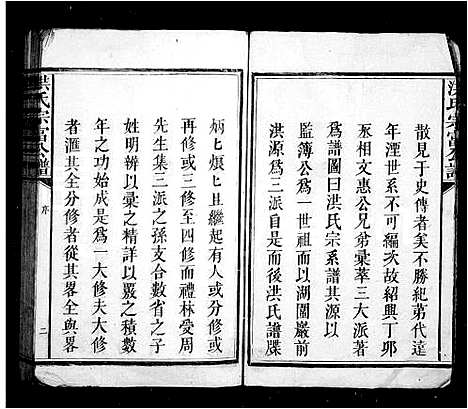 散見于史傳者矣不勝紀第代遠
年湮世系不可編次故紹興丁卯
丞相文惠公兄弟彙萃三大派著
爲譜圖曰洪氏宗系譜其源以
監簿公爲一世祖而以湖園巖前
洪源爲三派自後洪氏譜牒
炳匕烺匕且繼起有人或分修或
再修或三修至四修而禮林愛周
先生集三派之孫支合數省之子
姓明辨以彙之精詳以覈之積數
年之功始成是爲一大修夫大修
者滙其全分修者從其畧全與畧
洪氏宗富公譜
序
二